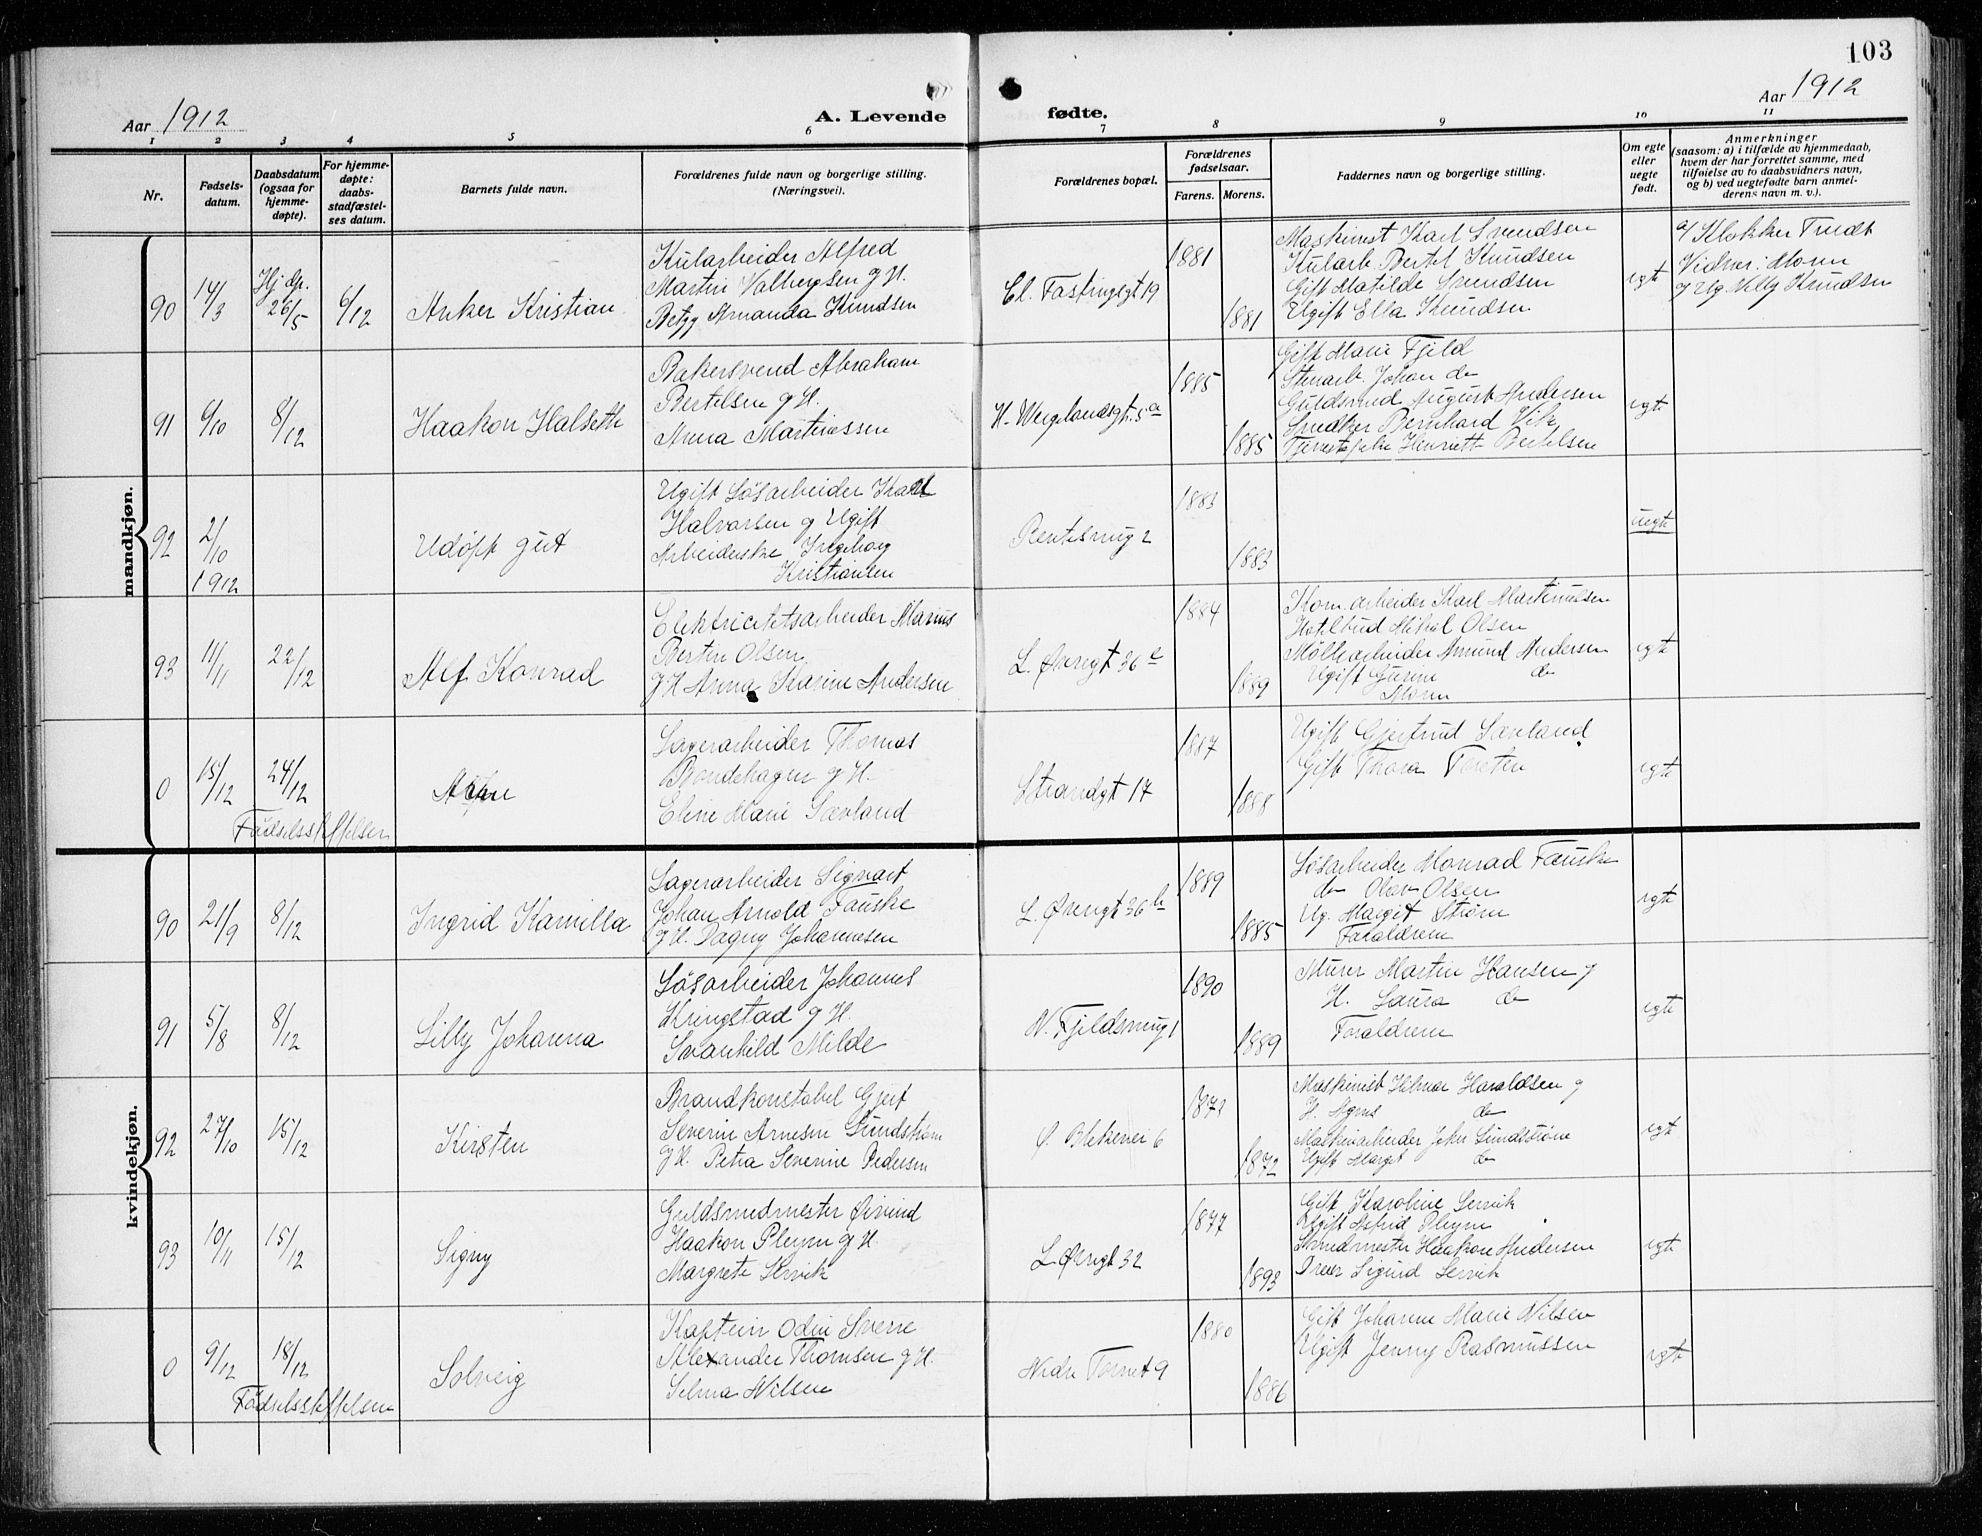 103
Aar 1912
A. Levende
fødte.
Aar 1912
1 2 3 4 5 6 7 8 9 10 11
Nr.
Fødsels-
datum.
Daabsdatum
(ogsaa for
hjemme-
døpte).
For hjemme-
døpte:
daabs-
stadfæstel-
ses datum.
Barnets fulde navn.
Forældrenes fulde navn og borgerlige stilling.
(Næringsvei).
Forældrenes bopæl.
Forældrenes
fødselsaar.
Farens. Morens.
Faddernes navn og borgerlige stilling.
Om egte
eller
uegte
født.
Anmerkninger
(saasom: a) i tilfælde av hjemmedaab,
hvem der har forrettet samme, med
tilføielse av to daabsvidners navn,
og b) ved uegtefødte barn anmel-
derens navn m. v.).
mandkjøn.
90
14/3
Hj.dp.
26/5
6/12
Anker Kristian
Kularbeider Alfred
Martin Valbergsen g H.
Betzy Amanda Knudsen
Cl. Fastingsgt 19
1881
1881
Maskinist Karl Svendsen
Kularb. Bertel Knudsen
Gift Matilde Svendsen
Ugift Ella Knudsen
egte
a/ Klokker Trudt
Vidner: Moren
og Knudsen
91
9/10
8/12
Haakon Halseth
Bakersvend Abraham
Bertelsen g H.
Anna Martinessen
H. Wergelandsgt. 5a
1885
1885
Gift Marie Fjeld
Stenarb. Johan do
Guldsmed August Andersen
Snedker Bernhard Vik
Tjenestepike Henriette Bertelsen
egte
92
2/10
1912
Udøpt gut
Ugift Løsarbeider Karl
Halvorsen g Ugift
Arbeiderske Ingeborg
Kristiansen
Rentesmug 2
1883
1883
uegte
93
11/11
22/12
Alf Konrad
Elektricitetsarbeider Marius
Bertin Olsen
g H Anna Karine Andersen
L. Øvregt 36e
1884
1889
Kom.arbeider Karl Martinussen
Hotelbud Mikal Olsen
Møllearbeider Amund Andersen
Ugift Gurine do
Moren
egte
0
15/12
24/12
Fødselsstiftelsen
Arne
Lagerarbeider Thomas
Bondehagen g H.
Eline Marie Sævland
Strandgt 17
1887
1888
Ugift Gjertrud Sævland
Gift Thora
egte
kvindekjøn.
90
21/9
8/12
Ingrid Kamilla
Lagerarbeider Sigvart
Johan Arnold Fauske
g H. Dagny Johannesen
L. Øvregt 36b
1889
1885
Løsarbeider Konrad Fauske
do Olav Olsen
Ug. Margit Strøm
Forældrene
egte
91
5/8
8/12
Lilly Johanna
Løsarbeider Johannes
Kringstad g H.
Svanhild Milde
N. Fjeldsmug 1
1890
1889
Murer Martin Hansen g
H. Laura do
Forældrene
egte
92
27/10
15/12
Kirsten
Brandkonstabel Gjert
Severin Arnesen Sundstrøm
g H. Petra Severine Pedersen
Ø. Blekevei 6
1872
1872
Maskinist Hilmar Haraldsen g
H. Agnes do
Maskinarbeider John Sundstrøm
Ugift Margit do
egte
93
10/11
15/12
Signy
Guldsmedmester Øivind
Haakon Pleym g H
Margrete Lervik
L Øvregt 32
1877
1893
Gift Karoline Lervik
Ugift Astrid Pleym
Smedmester Haakon Andersen
Dreier Sigurd Lervik
egte
0
9/12
18/12
Fødselsstiftelsen
Solveig
Kaptein Odin Sverre
Alexander Thomsen g H.
Selma Nilsen
Nedre Tornet 9
1880
1886
Gift Johanne Marie Nilsen
Ugift Jenny Rasmussen
egte